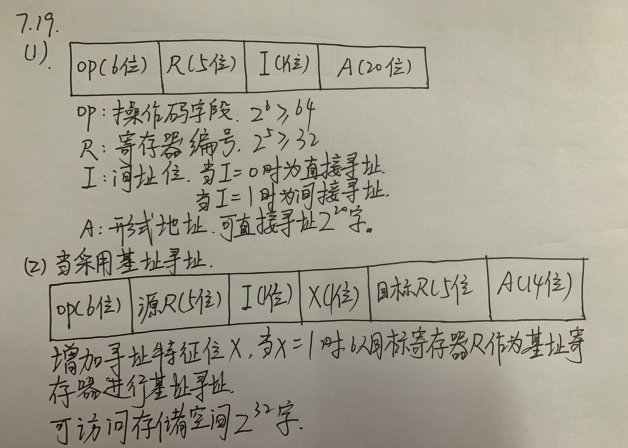 7.19.
(1). OP(6位) R(5位) I(1位) A(20位)
OP: 操作码字段. 2⁶≥64
R: 寄存器编号. 2⁵≥32
I: 间址位. 当I=0时为直接寻址.
当I=1时为间接寻址.
A: 形式地址. 可直接寻址2²⁰字。
(2) 当采用基址寻址.
op(6位) 源R(5位) I(1位) X(1位) 目标R(5位 A(14位)
增加寻址特征位X, 当X=1时, 以目标寄存器R作为基址寄
存器进行基址寻址.
可访问存储空间2³²字.